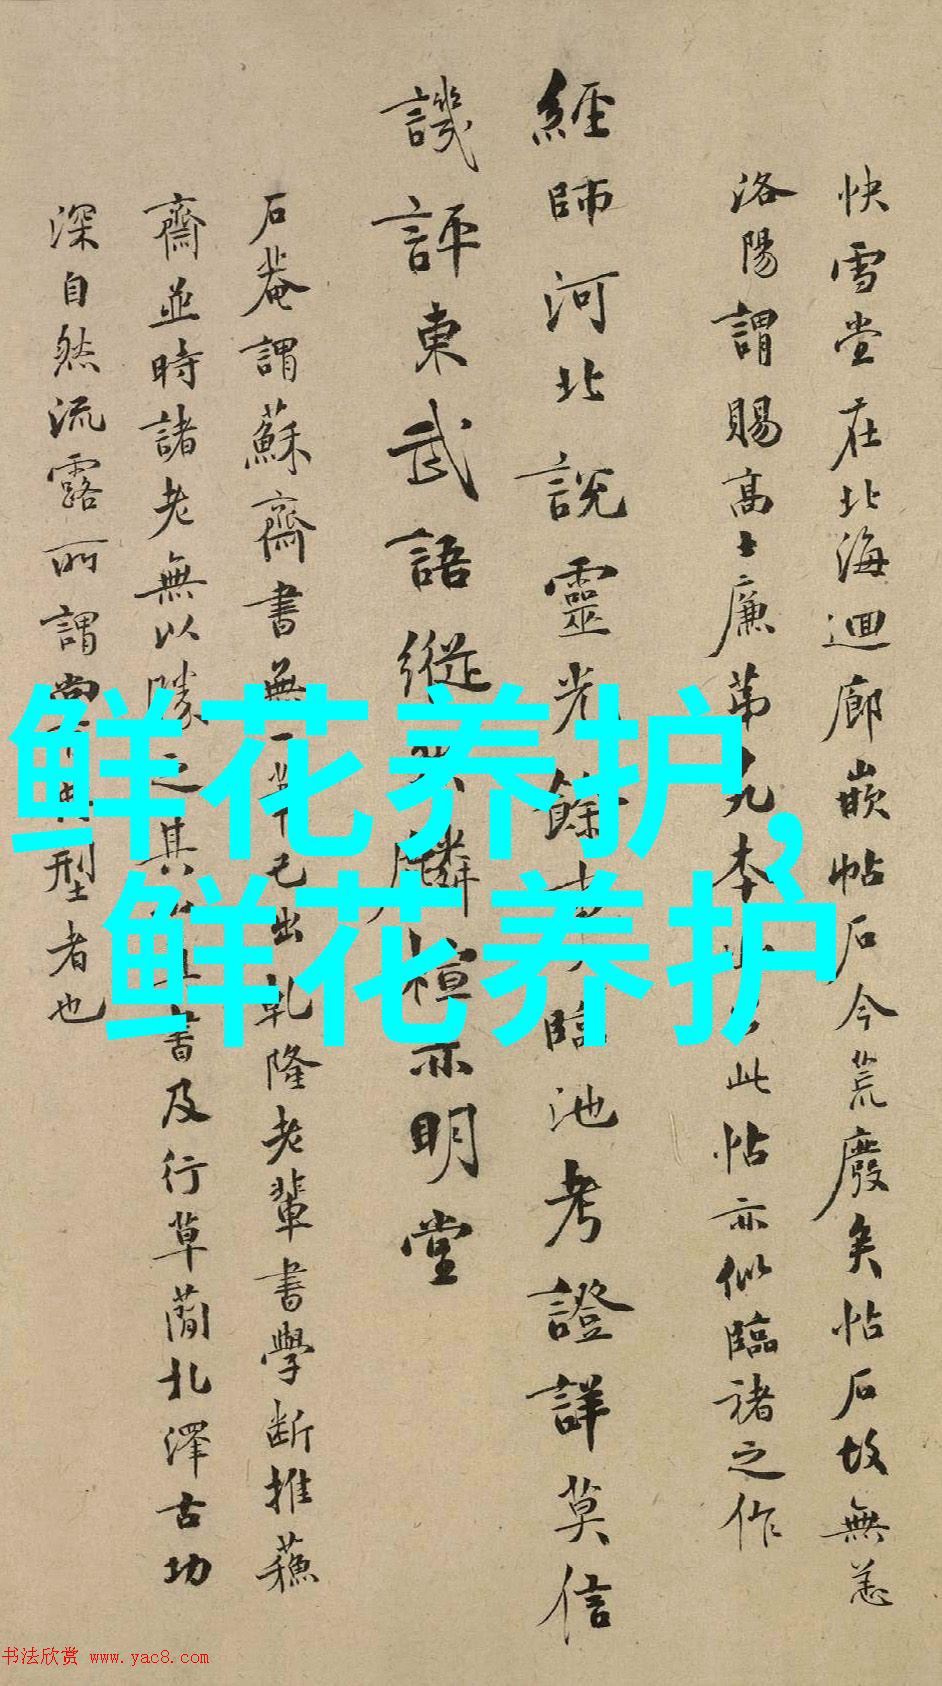 快雪堂在北海迴廊嵌帖石今荒廢矣帖石故無恙
洛陽謂賜高士廉第九本此帖亦似臨褚之作
經師河北說靈光餘臨池考證詳莫信
譏評東武語縱麟楦亦明堂
石菴謂蘇齋書無一筆己出乾隆老輩書學斷推蘇
齋並時諸老無以勝之其書及行草澤古功
深自然流露所謂型者也
鲜花养护,
鲜花养护
书法欣赏 www.yac8.com